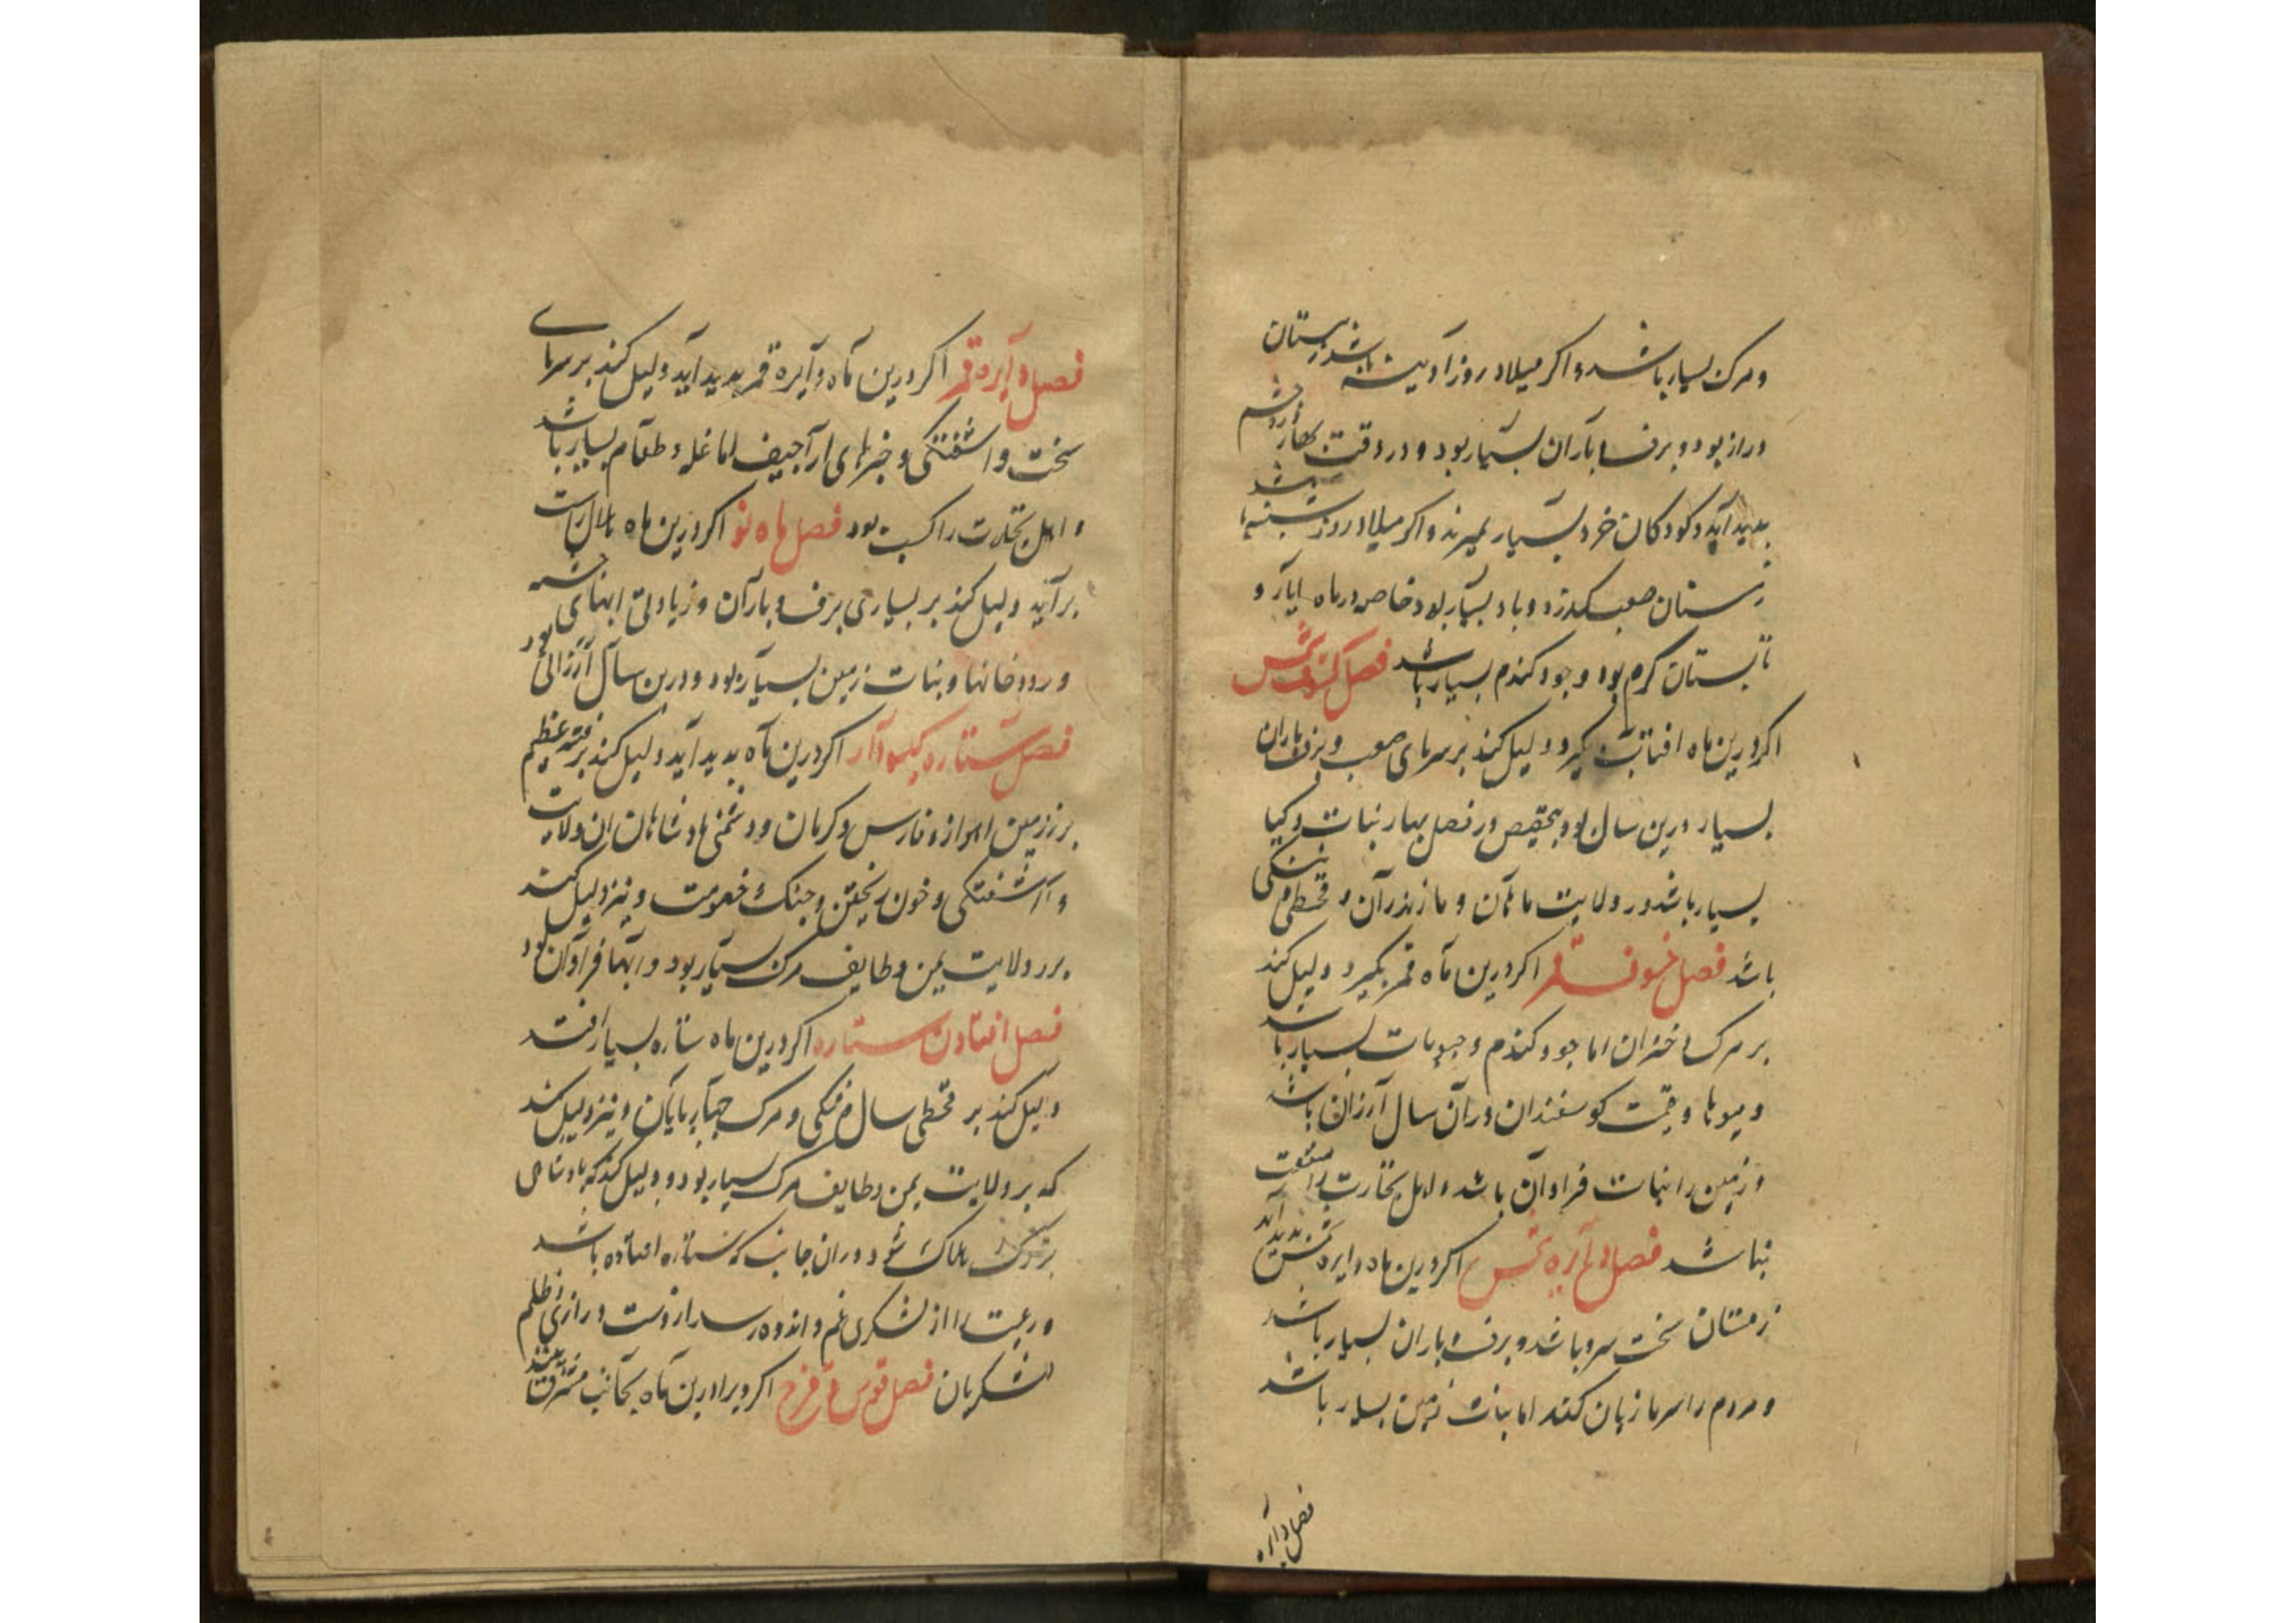 ومرک بسیار باشد و اکر میلاد روز آدینه باشد زمستان
دراز بود و برف و باران بسیار بود و در وقت بهار درد چشم
بدید آید و کودکان خرد بسیار بمیرند و اکر میلاد روز شنبه باشد
زمستان صعب کذرد و باد بسیار بود خاصه در ماه ایار و
تابستان کرم بود و جو و کندم بسیار باشد فصل کسوف شمس
اکر درین ماه افتاب بکیرد دلیل کند بر سرمای صعب و برف و باران
بسیار درین سال بود بتخصیص در فصل بهار نبات و کیا
بسیار باشد در ولایت ماهان و مازندران و قحطی و تنکی
باشد فصل خسوف قمر اکر درین ماه قمر بکیرد دلیل کند
بر مرک دختران اما جو و کندم و حبوبات بسیار باشد
و میوها و قیمت کوسفندان دران سال آرزان باشد
و زمین را نبات فراوان باشد و اهل تجارت را منفعت
نباشد فصل دایره شمس اکر درین ماه دایره شمس بدید آید
زمستان سخت سرد باشد و برف و باران بسیار باشد
و مردم را سرما زیان کند اما نبات زمین بسیار باشد
فصل دایره
فصل دایره قمر اکر درین ماه دایره قمر بدید آید دلیل کند بر سرمای
سخت و آشفتکی و خبرهای اراجیف اما غله و طعام بسیار باشد
و اهل تجارت را کسب بود فصل ماه نو اکر درین ماه هلال راست
برآید دلیل کند بر بسیاری برف و باران و زیادتی ابهای چشمه
و رودخانها و نبات زمین بسیار بود و درین سال آرزانی بود
فصل ستاره کیسودار اکر درین ماه بدید آید دلیل کند بر فتنه عظیم
بر زمین اهواز و فارس و کرمان و دشمنی پادشاهان ان ولایت
و آشفتکی و خون ریختن و جنک و خصومت و نیز دلیل کند
بر ولایت یمن و طایف مرک بسیار بود و ابها فراوان بود
فصل افتادن ستاره اکر درین ماه ستاره بسیار افتد
دلیل کند بر قحطی سال و تنکی و مرک چهارپایان و نیز دلیل کند
که بر ولایت یمن و طایف مرک بسیار بود و دلیل کند که پادشاهی
بزرک هلاک شود دران جانب که ستاره افتاده باشد
و رعیت را از لشکری غم و اندوه رسد از دست درازی و ظلم
لشکریان فصل قوس قزح اکر ویرا درین ماه بجانب مشرق بینند